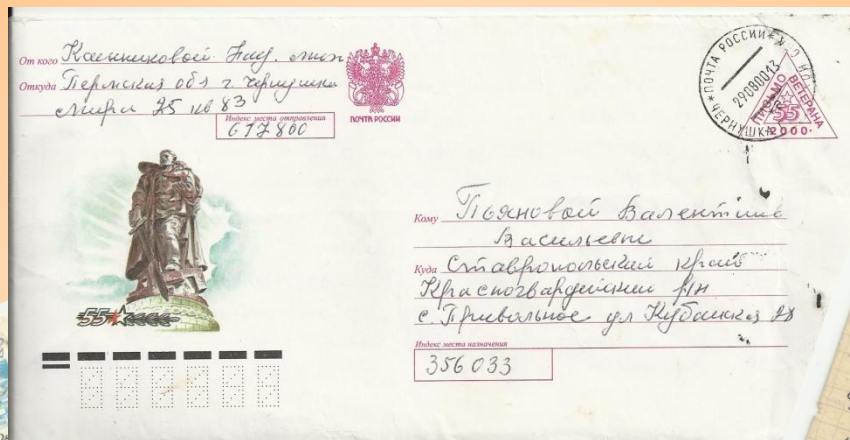 От кого
Откуда Пермская обл г. Чернушка
Мира 25 кв 83
Индекс места отправления
617800
ПОЧТА РОССИИ
ПОЧТА РОССИИ
290800
ЧЕРНУШКА
ПИСЬМО ВЕТЕРАНА
55
2000
55
Кому Пьяновой Валентине
Васильевне
Куда Ставропольский край
Красногвардейский р/н
с. Привольное ул Кубанская 28
Индекс места назначения
356033